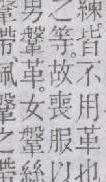 練皆不用革也
之等故喪服以
男鞶革。女鞶絲
鞶帶佩鞶之帶